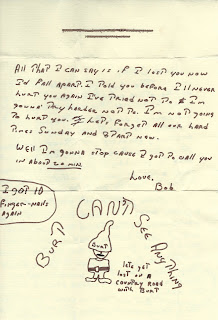 All that I can say is if I lost you now
I'd fall apart. I told you before I'll never
hurt you again I've tried not to & I'm
gonna try harder not to. I'm not going
to hurt you. Let's forget all our hard
times Sunday and start new.
Well I'm gonna stop cause I got to call you
in about 20 min.
Love,
Bob
I got 10
Finger-nails
again
BURT
CAN'T
SEE
ANYTHING
BURT
lets get
lost on a
country road
with Burt